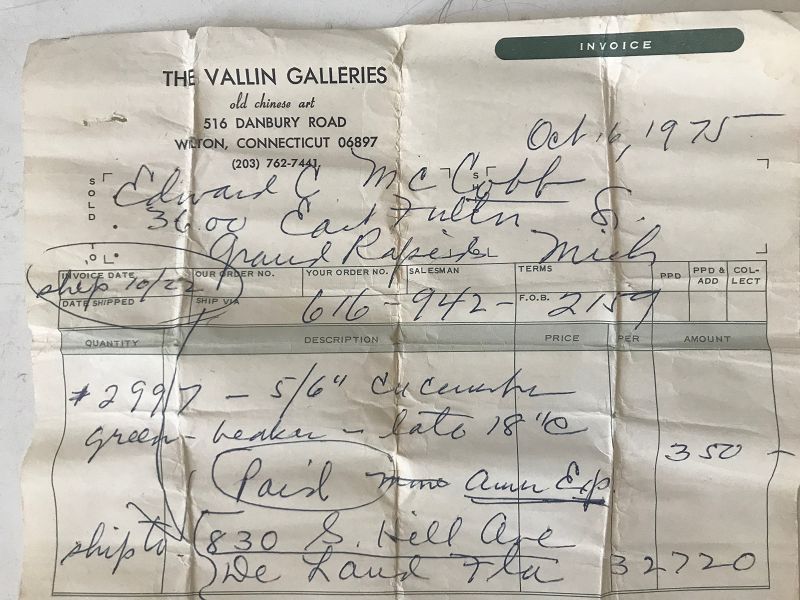 INVOICE
THE VALLIN GALLERIES
old chinese art
516 DANBURY ROAD
WILTON, CONNECTICUT 06897
(203) 762-7441
Oct 16, 1975
SOLD TO
Edward C McCobb
3600 East Fulton S.
Grand Rapids Mich
INVOICE DATE OUR ORDER NO. YOUR ORDER NO. SALESMAN TERMS PPD PPD & ADD COL-LECT
ship 10/22
DATE SHIPPED SHIP VIA F.O.B.
616-942-2159
QUANTITY DESCRIPTION PRICE PER AMOUNT
#2997 - 5/6" cucumber
green - beaker - late 18th C
350 -
Paid Amer Exp
ship to - 830 S. Hill Ave
De Land Fla 32720